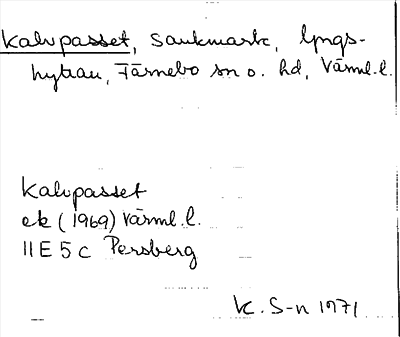 Kalvpasset, Sankmark, Lyngs-
hyttan, Färnebo sn o. hd, Värml. l.
Kalvpasset
ek (1969) Värml. l.
11E 5c Persberg
K. S-n 1971